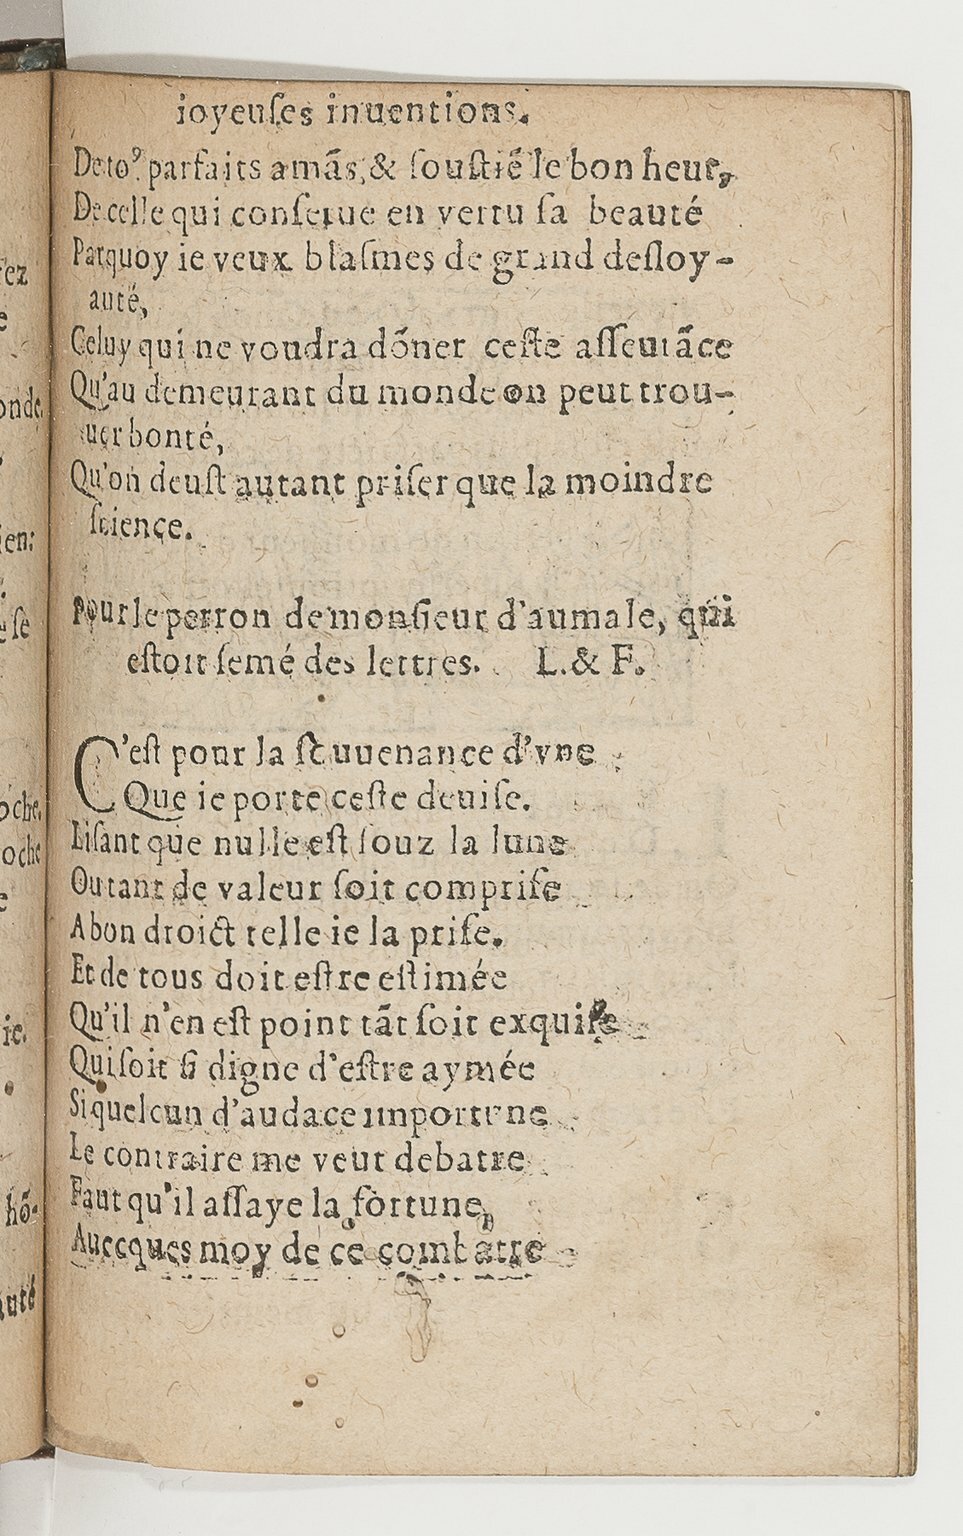 ioyeuſes inuentions.
De toꝰ parfaits amãs, & ſouſtiẽ le bon heur,
De celle qui conſerue en vertu ſa beauté
Parquoy ie veux blaſmes de grand deſloy-
auté,
Celuy qui ne voudra dõner ceſte aſſeurãce
Qu'au demeurant du monde on peut trou-
uer bonté,
Qu'on deuſt autant priſer que la moindre
ſcience.
Pour le perron de monſieur d'aumale, qui
eſtoit ſemé des lettres. L. & F.
C'eſt pour la ſouuenance d'vne
Que ie porte ceſte deuiſe.
Liſant que nulle eſt ſouz la lune
Ou tant de valeur ſoit compriſe
A bon droict telle ie la priſe.
Et de tous doit eſtre eſtimée
Qu'il n'en eſt point tãt ſoit exquiſe
Qui ſoit ſi digne d'eſtre aymée
Si quelcun d'audace importune
Le contraire me veut debatre
Faut qu'il aſſaye la fortune,
Auecques moy de ce combatre
rez
e
onde,
ien:
ſe
oche,
oche
e
ie.
hõ-
auté